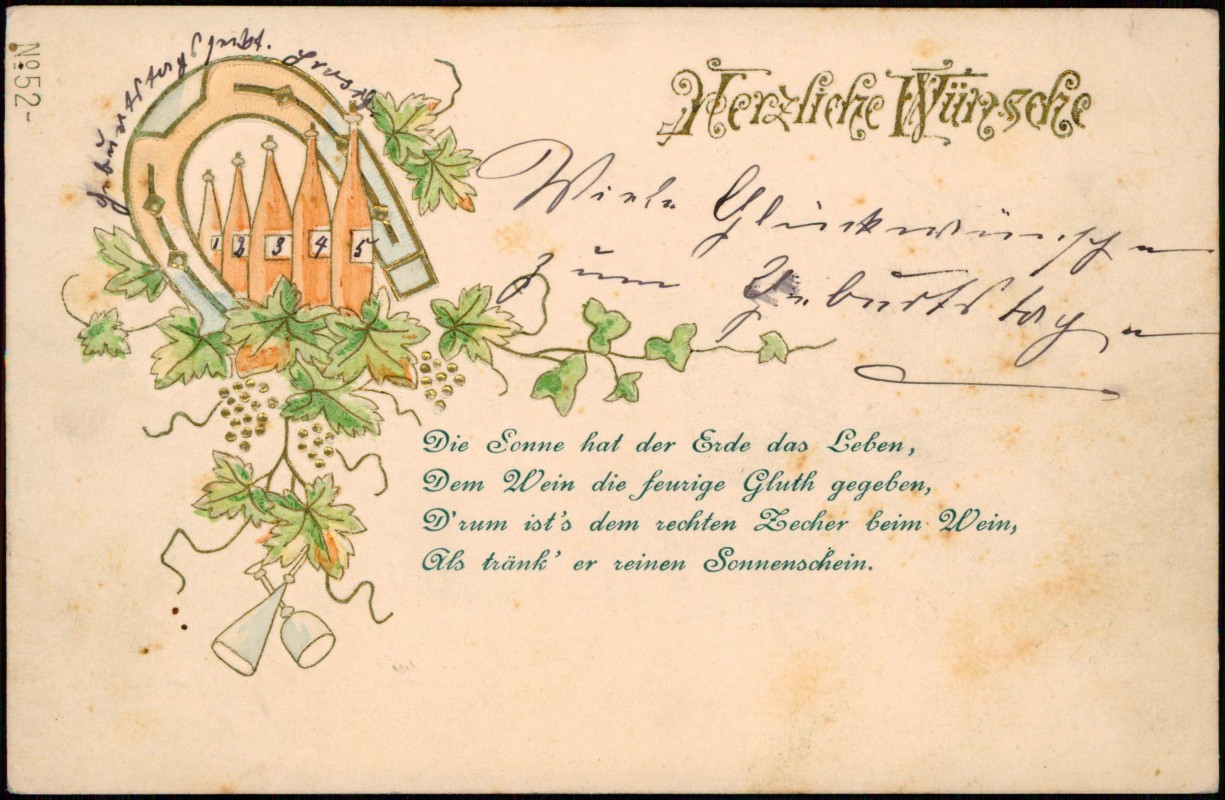 No 52-
Herzliche Wünsche
Viele Glückwünsche
zum Geburtstage
1 2 3 4 5
Die Sonne hat der Erde das Leben,
Dem Wein die feurige Gluth gegeben,
D'rum ist's dem rechten Zecher beim Wein,
Als tränk' er reinen Sonnenschein.